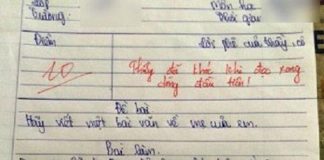 Lớp Môn học
Trường Thời gian
Điểm Lời phê của thầy, cô
10 Thầy đã khóc khi đọc xong
dòng đầu tiên!
Đề bài
Hãy viết một bài văn về mẹ của em.
Bài làm.